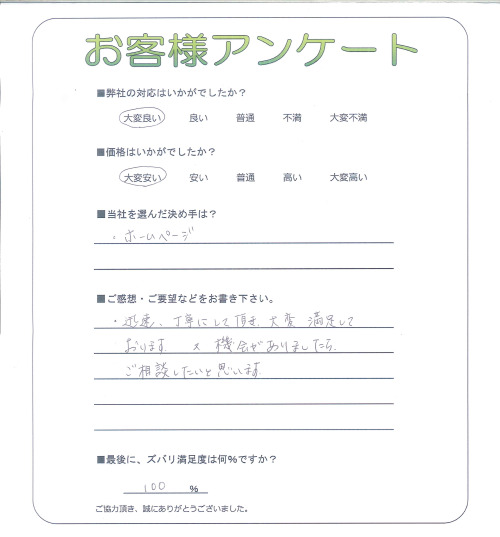 お客様アンケート
■弊社の対応はいかがでしたか？
大変良い 良い 普通 不満 大変不満
■価格はいかがでしたか？
大変安い 安い 普通 高い 大変高い
■当社を選んだ決め手は？
・ホームページ
■ご感想・ご要望などをお書き下さい。
・迅速、丁寧にして頂き、大変 満足して
おります。 機会がありましたら、
ご相談したいと思います。
■最後に、ズバリ満足度は何%ですか？
100 %
ご協力頂き、誠にありがとうございました。